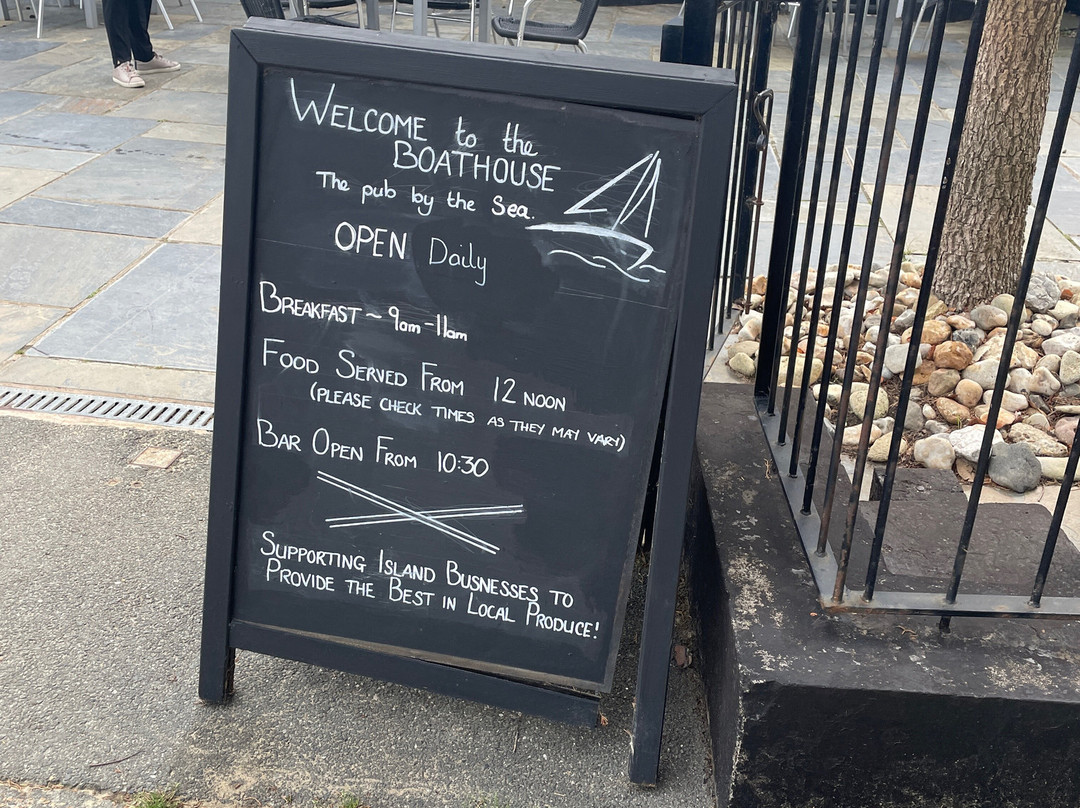 WELCOME to the
BOATHOUSE
The pub by the Sea.
OPEN Daily
BREAKFAST ~ 9am-11am
FOOD SERVED FROM 12 NOON
(PLEASE CHECK TIMES AS THEY MAY VARY)
BAR OPEN FROM 10:30
SUPPORTING ISLAND BUSNESSES TO
PROVIDE THE BEST IN LOCAL PRODUCE!